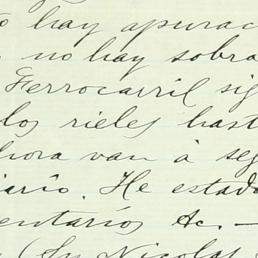 hay apurac
no hay sobra
Ferrocarril sig
los rieles hast
hora van á seg
iario. He estado
entarios &c. —
(Sn Nicolas